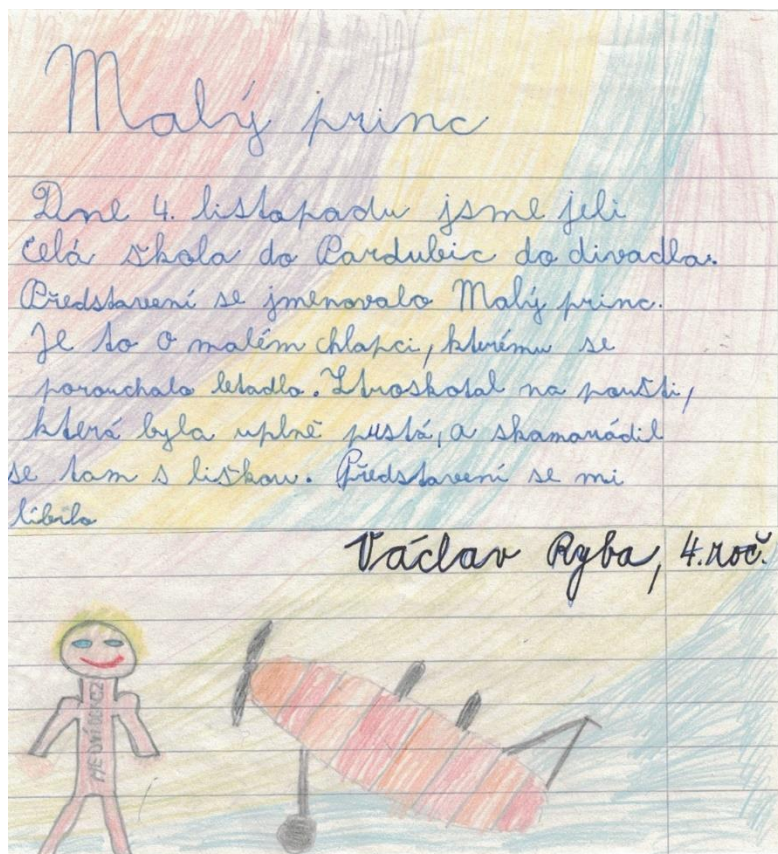 Malý princ
Dne 4. listopadu jsme jeli
celá škola do Pardubic do divadla.
Představení se jmenovalo Malý princ.
Je to o malém chlapci, kterému se
porouchalo letadlo. Ztroskotal na poušti,
která byla uplně pustá, a skamarádil
se tam s liškou. Představení se mi
líbilo
Václav Ryba, 4. roč.